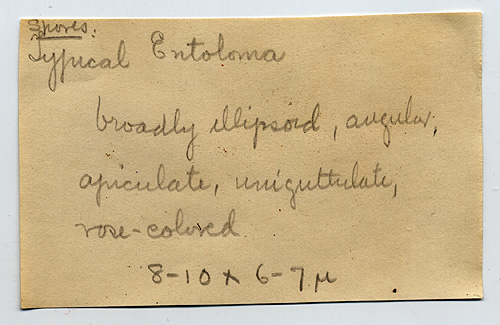 Spores:
Typical Entoloma
broadly ellipsoid, angular,
apiculate, uniguttulate,
rose-colored
8-10 x 6-7 μ